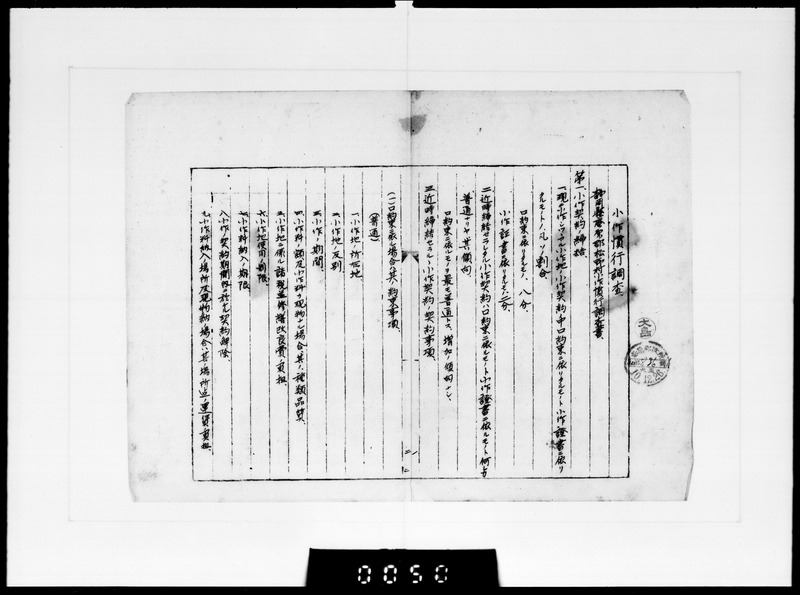 小作慣行調査
静岡縣 小作慣行調査書
第一、小作契約ノ締結
一現ニ小作シツヽアル小作地ノ小作契約中口約束ニ依リタルモノト小作證書ニ依リ
タルモノトノ凡ソノ割合
口約束ニ依リタルモノ、八分、
小作証書ニ依リタルモノ、二分、
二近時締結セラレタル小作契約ハ口約束ニ依ルモノト小作證書ニ依ルモノト何レカ
普通ナリヤ其ノ傾向
口約束ニ依ルモノヲ最モ普通トス、増加ノ傾向ナシ、
三近時締結セラルヽ小作契約ノ契約事項、
(一)口約束ニ依ル場合ノ其ノ約束事項、
(普通)
一、小作地ノ所在地
二、小作地ノ反別
三、小作ノ期間
四、小作料ノ額及小作料ヲ現物ナル場合其ノ種類品質、
五、小作地ニ係ル諸税並修繕改良費ノ負担、
六、小作地使用ノ制限、
七、小作料納入ノ期限
八、小作契約期間 契約解除、
九、小作料納入ノ場所及現物納ノ場合ハ其ノ場所迄ノ運賃負担、
0050